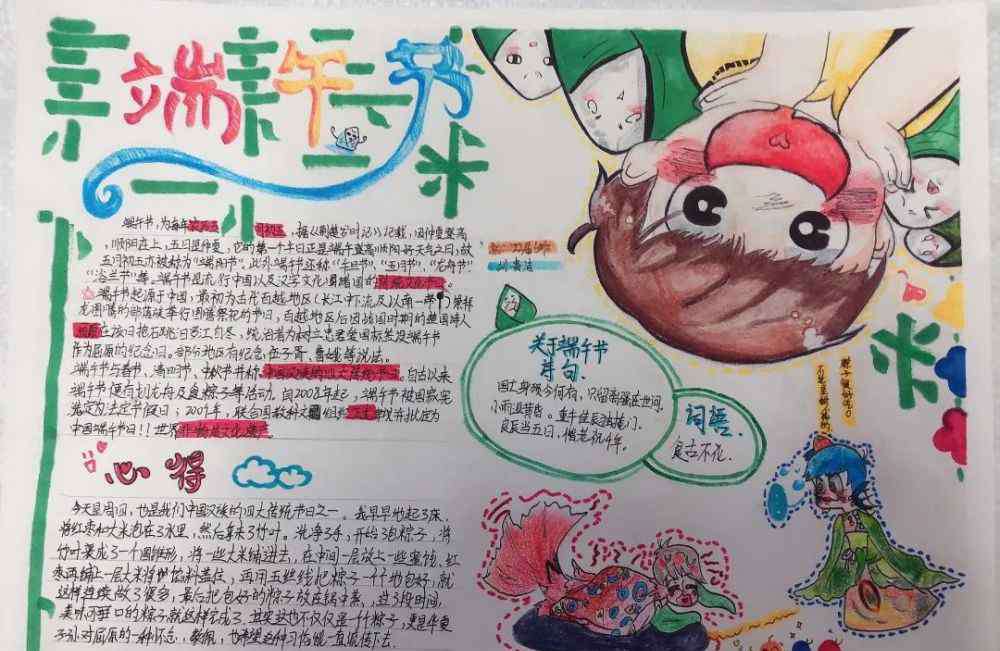 端午节
端午节,为每年农历五月初五。据《荆楚岁时记》记载,因仲夏登高
,顺阳在上,五月是仲夏,它的第一个午日正是登高顺阳好天气之日,故
五月初五亦被称为"端阳节"。此外端午节还称"午日节"、"五月节"、"龙舟节"
"浴兰节"等。端午节是流行中国以及汉字文化圈诸国的传统文化节日。
端午节起源于中国,最初为古代百越地区(长江中下流及以南一带)崇拜
龙图腾的部落族举行图腾祭祀的节日,百越地区后因战国时期的楚国诗人
屈原在该日抱石跳汨罗江自尽,统治者为树立忠君爱国标签没端午节
作为屈原的纪念日。部分地区有纪念伍子胥、曹娥等说法。
端午节与春节、清明节、中秋节并称中国汉族的四大传统节日。自古以来
端午节便有划龙舟及食粽子等活动。自2008年起,端午节被国家
法定节假日;2009年,联合国教科文组织正式审议并批准为
中国端午节日!!世界非物质文化遗产。
心得
今天是周四,也是我们中国汉族的四大传统节日之一。我早早地起了床,
将红枣和大米泡在了水里,然后拿来了竹叶。洗净了手,开始了包粽子,将
竹叶裹成了一个圆锥形,将一些大米铺进去,在中间一层放上一些蜜饯、红
枣再铺上一层大米将馅料盖住,再用五丝线把粽子一个个地包好,就
这样连续做了很多,最后把包好的粽子放在锅中煮,过了段时间,
美味可口的粽子就这样完成了。其实这也不仅仅是一个粽子,更是华夏
子孙对屈原的一种怀念、敬佩,也希望这种习俗能一直流传下去。
关于端午节
诗句
国亡身殒今何有,只留离骚在世间。
小雨湿黄昏。重午佳辰独掩门。
良辰当五日,偕老祝千年。
词语
米